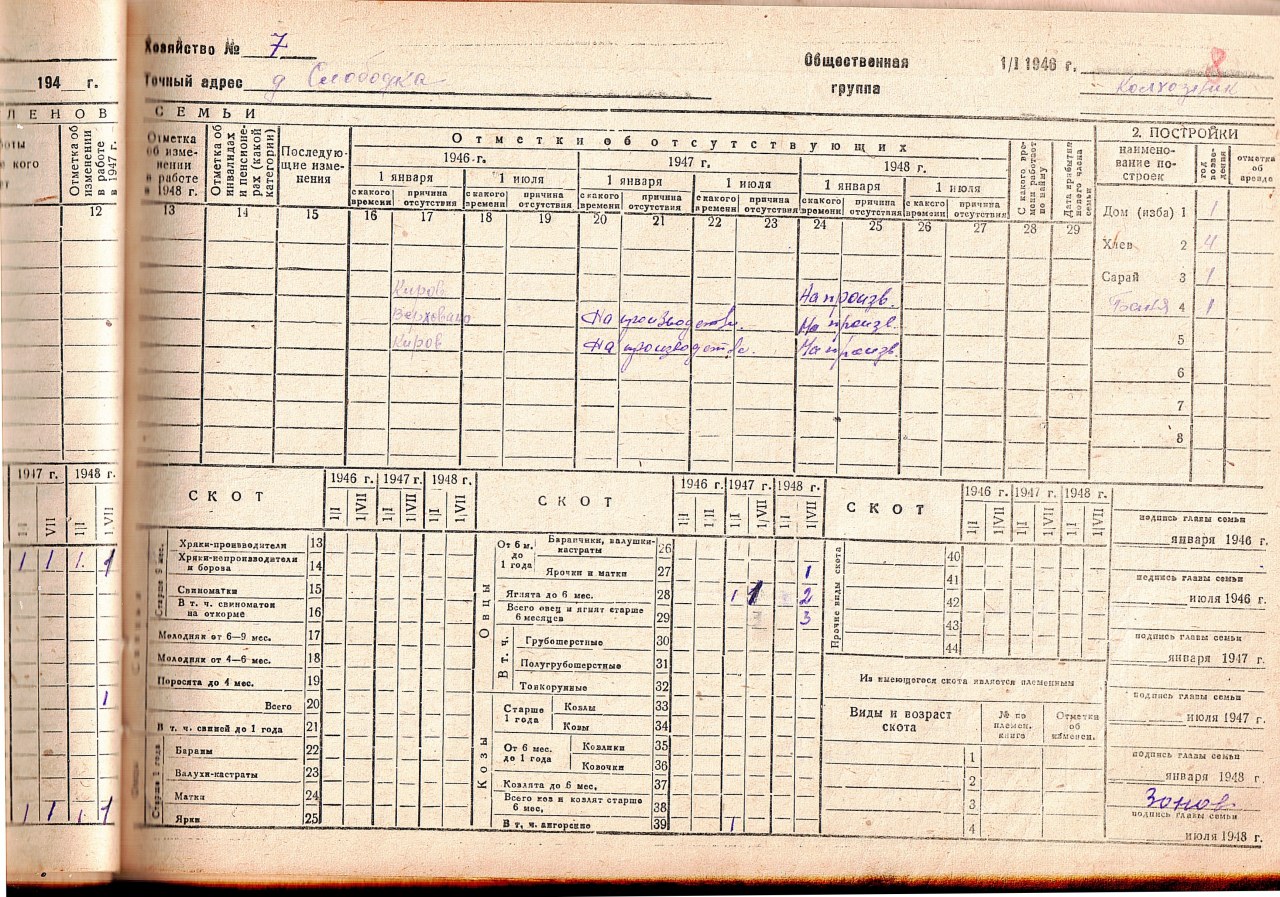 Хозяйство № 7
Общественная группа 1/I 1946 г.
8
Колхозник
194 г.
Точный адрес д Слободка
ЛЕНОВ
СЕМЬИ
кого
Отметка об изменении в работе в 1947 г.
12
Отметка об изменении в работе в 1948 г.
Отметка об инвалидах и пенсионерах (какой категории)
Последующие изменения
Отметки об отсутствующих
1946 г.
1947 г.
1948 г.
1 января
1 июля
1 января
1 июля
1 января
1 июля
с какого времени
причина отсутствия
с какого времени
причина отсутствия
с какого времени
причина отсутствия
с какого времени
причина отсутствия
с какого времени
причина отсутствия
с какого времени
причина отсутствия
С какого времени работает по найму
Дата прибытия нового члена семьи
13 14 15 16 17 18 19 20 21 22 23 24 25 26 27 28 29
Киров На произв.
На производстве. На произв.
Киров На производстве. На произв.
2. ПОСТРОЙКИ
наименование построек
год возведения
отметка об аренде
Дом (изба) 1 1
Хлев 2 4
Сарай 3 1
Баня 4 1
5
6
7
8
1947 г. 1948 г.
1|I VII 1|I 1|VII
1 1 1 1
1
1 1 1 1
СКОТ
1946 г. 1947 г. 1948 г.
1|I 1|VII 1|I 1|VII 1|I 1|VII
Хряки-производители 13
Хряки-непроизводители и борова 14
Свиноматки 15
В т. ч. свиноматок на откорме 16
Молодняк от 6—9 мес. 17
Молодняк от 4—6 мес. 18
Поросята до 4 мес. 19
Всего 20
В т. ч. свиней до 1 года 21
Старше 1 года
Бараны 22
Валухи-кастраты 23
Матки 24
Ярки 25
СКОТ
1946 г. 1947 г. 1948 г.
1|I 1|VII 1|I 1|VII 1|I 1|VII
Овцы
От 6 м. до 1 года
Баранчики, валушки-кастраты 26
Ярочки и матки 27 1
Ягнята до 6 мес. 28 1 1 2
Всего овец и ягнят старше 6 месяцев 29 3
В т. ч.
Грубошерстные 30
Полугрубошерстные 31
Тонкорунные 32
Козы
Старше 1 года
Козлы 33
Козы 34
От 6 мес. до 1 года
Козлики 35
Козочки 36
Козлята до 6 мес. 37
Всего коз и козлят старше 6 мес. 38
В т. ч. ангорские 39 1
СКОТ
1946 г. 1947 г. 1948 г.
1|I 1|VII 1|I 1|VII 1|I 1|VII
Прочие виды скота
40
41
42
43
44
Из имеющегося скота является племенным
Виды и возраст скота
№ по племен. книге
Отметки об изменен.
1
2
3
4
подпись главы семьи
января 1946 г.
подпись главы семьи
июля 1946 г.
подпись главы семьи
января 1947 г.
подпись главы семьи
июля 1947 г.
подпись главы семьи
января 1948 г.
Зонов
подпись главы семьи
июля 1948 г.